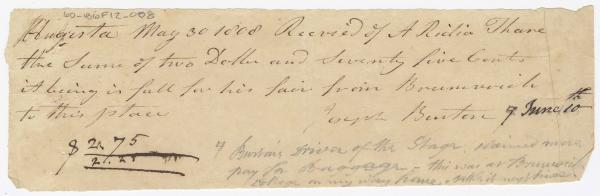 60-186F12-008
Augusta May 30 1808 Recvied of A Ridia Thare
the Sume of two Doller and Seventy five Cents
it being in full for his fair from Brunswich
to this place Joseph Burton 7 June 10th
$ 2. 75
Burton Driver of the Stage, claimed more
pay for Baggage - this was at Brunswick
College on my way home,